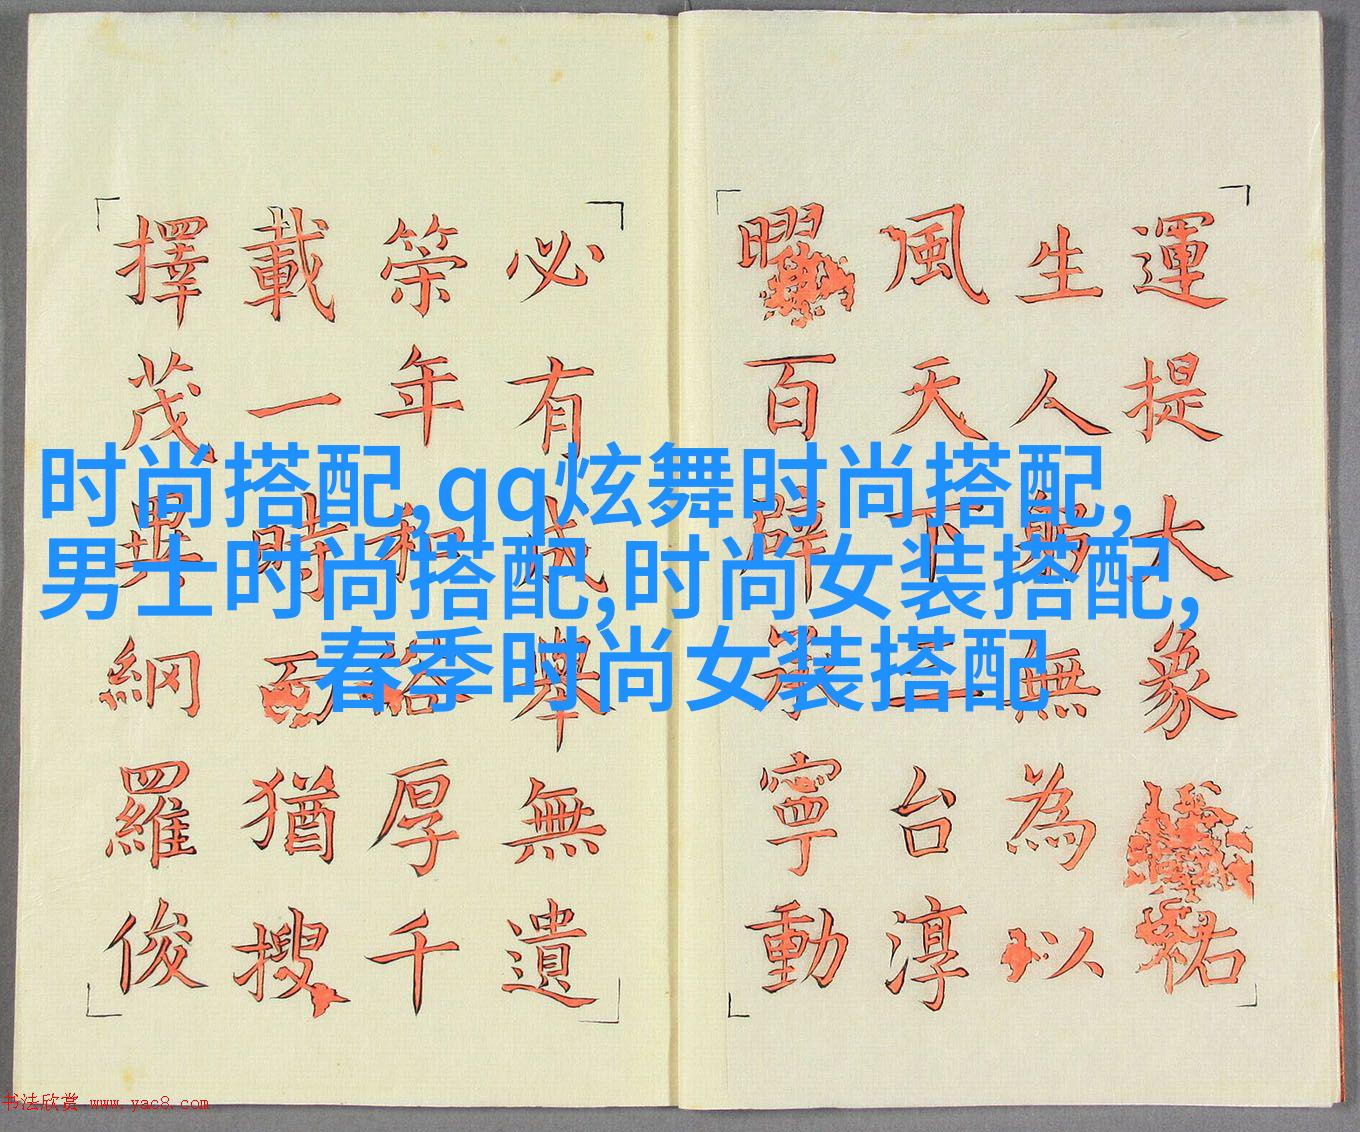 时尚搭配,qq炫舞时尚搭配,
男士时尚搭配,时尚女装搭配,
春季时尚女装搭配
運提大象祐
生人無為以
風天下台淳
曜百辟寧動
必有成舉無遺
筞年和厚千
載一時而猶搜
擇茂異網羅俊
书法欣赏 www.yac8.com